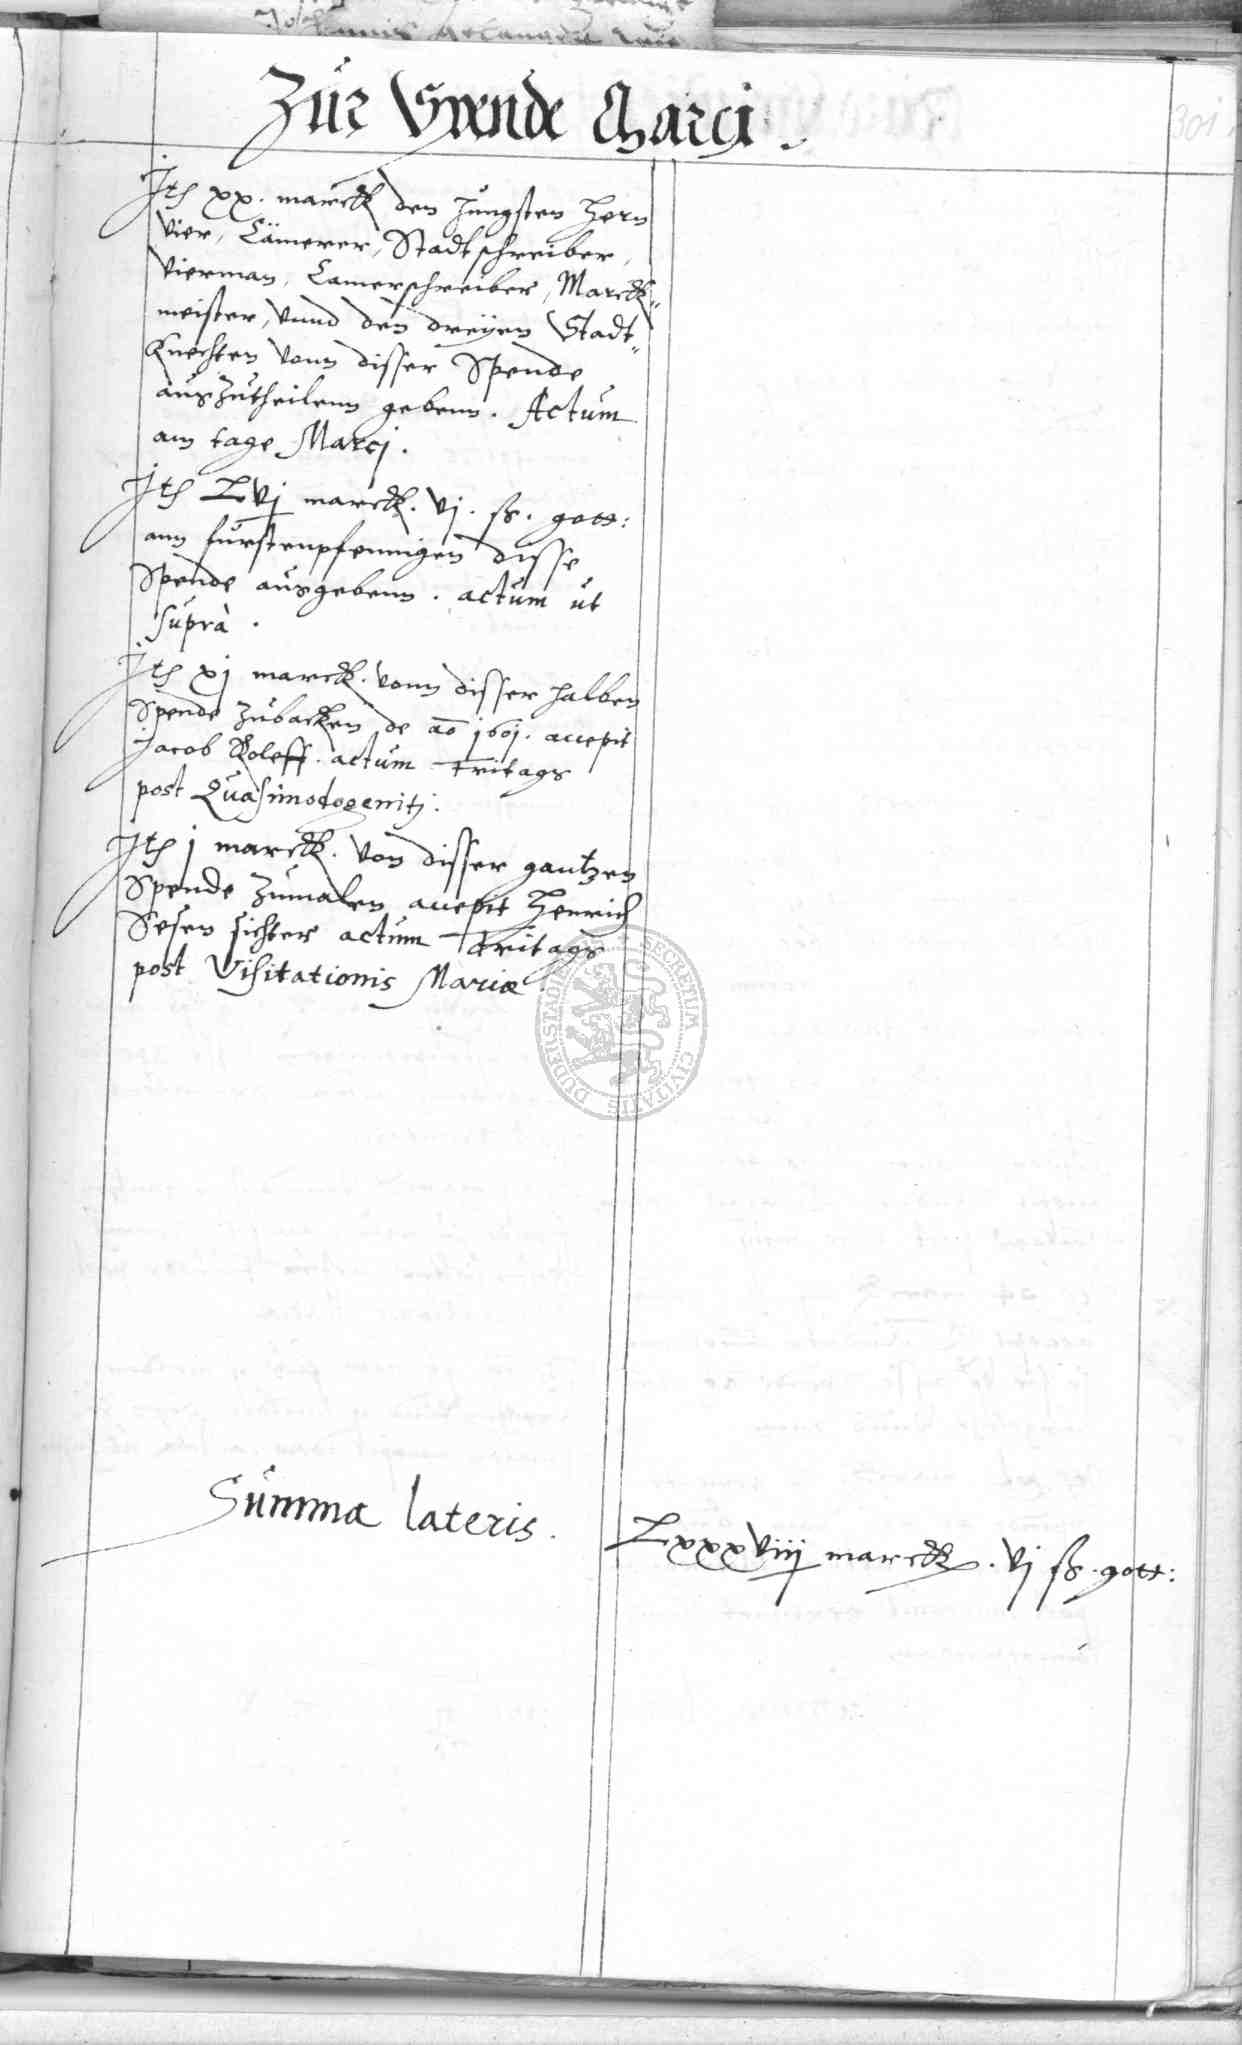 Zur Spende Marcj.
301
Jtē xx. marck den Jungsten Hern
Vier, Cämerer, Stadtschreiber,
Vierman, Camerschreiber, Marck=
meister, vnnd den dreÿen Stadt=
Knechten vonn disser Spende
auszutheilenn gebenn. Actum
am tage Marcj.
Jtē Lvj marck. vj. ß. gott:
ann furstenpfennigen disse
Spende ausgebenn. actum ut
suprà.
Jtē xj marck. vonn disser halben
Spende zubacken de aō j60j. accepit
Jacob Roleff. actum Fritags
post Quasimodogenitj.
Jtē j marck. von disser gantzen
Spende zumalen accepit Henrich
Sesen sichter actum Fritags
post Visitationis Mariæ.
SECRETUM CIVITATIS DUDERSTADIE
Summa lateris.
Lxxxviij marck. vj ß. gott: